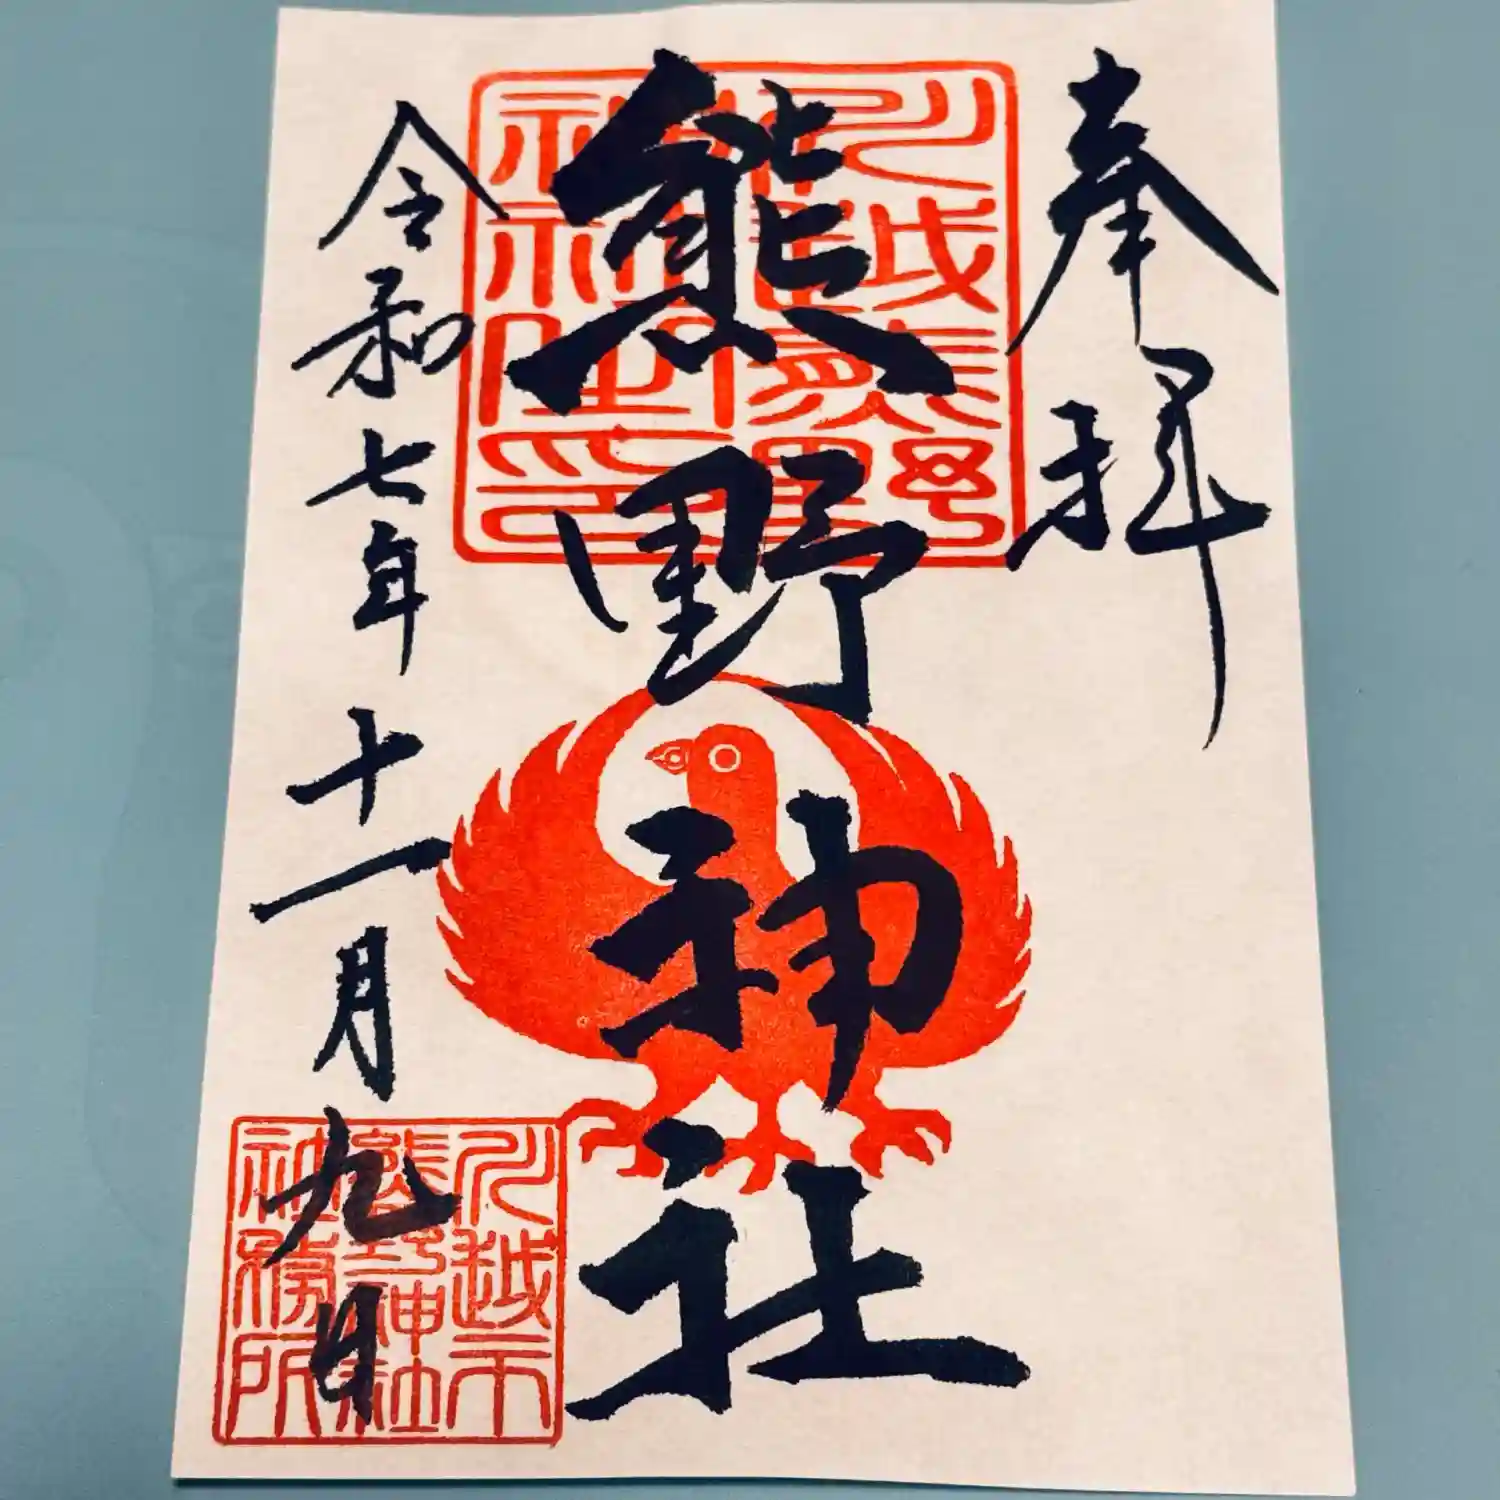 奉拝
熊野神社
令和七年十一月九日
川越市
熊野神社
社務所